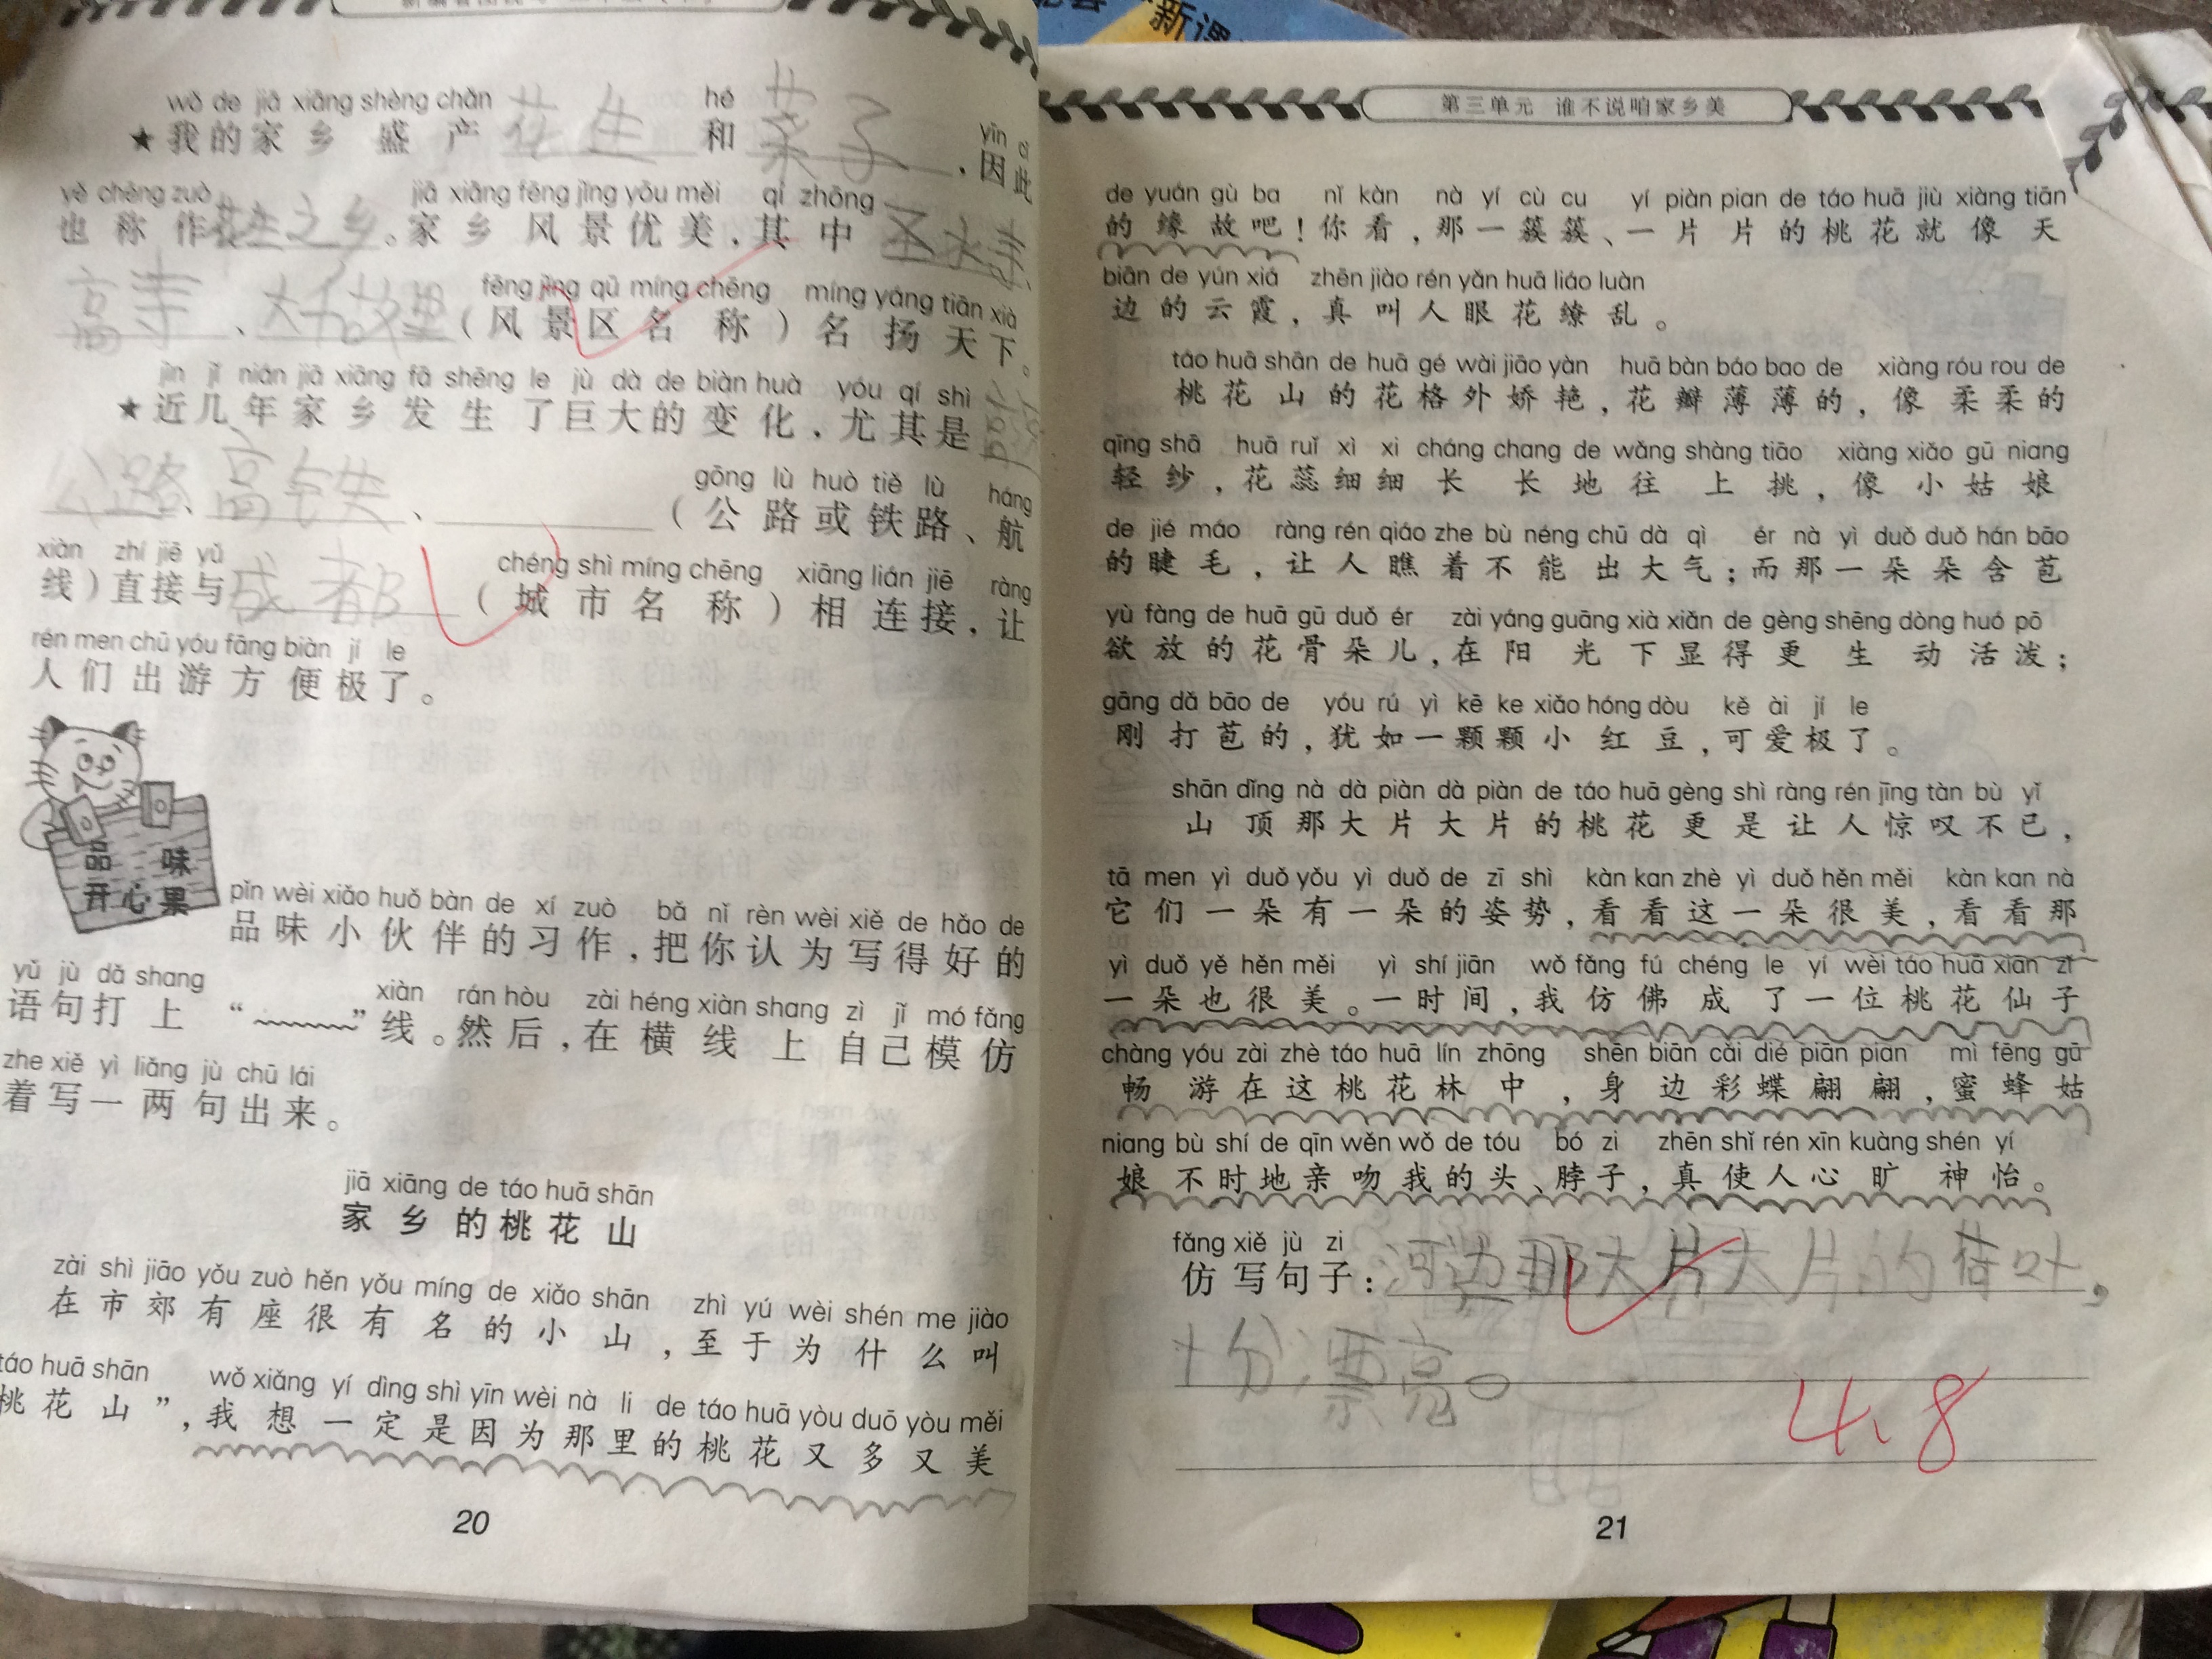 wǒ de jiā xiāng shèng chǎn hé
★我的家乡盛产花生和菜子，因此
yīn cǐ
yě chēng zuò jiā xiāng fēng jǐng yōu měi qí zhōng
也称作花生之乡。家乡风景优美，其中圣水寺、
fēng jǐng qū míng chēng míng yáng tiān xià
高寺、大千故里（风景区名称）名扬天下。
jìn jǐ nián jiā xiāng fā shēng le jù dà de biàn huà yóu qí shì
★近几年家乡发生了巨大的变化，尤其是
gōng lù huò tiě lù háng
公路、高铁、（公路或铁路、航
xiàn zhí jiē yǔ chéng shì míng chēng xiāng lián jiē ràng
线）直接与成都（城市名称）相连接，让
rén men chū yóu fāng biàn jí le
人们出游方便极了。
品味
开心果
pǐn wèi xiǎo huǒ bàn de xí zuò bǎ nǐ rèn wèi xiě de hǎo de
品味小伙伴的习作，把你认为写得好的
yǔ jù dǎ shang xiàn rán hòu zài héng xiàn shang zì jǐ mó fǎng
语句打上“﹏﹏”线。然后，在横线上自己模仿
zhe xiě yì liǎng jù chū lái
着写一两句出来。
jiā xiāng de táo huā shān
家乡的桃花山
zài shì jiāo yǒu zuò hěn yǒu míng de xiǎo shān zhì yú wèi shén me jiào
在市郊有座很有名的小山，至于为什么叫
táo huā shān wǒ xiǎng yí dìng shì yīn wèi nà li de táo huā yòu duō yòu měi
桃花山”，我想一定是因为那里的桃花又多又美
20
第三单元 谁不说咱家乡美
de yuán gù ba nǐ kàn nà yí cù cu yí piàn pian de táo huā jiù xiàng tiān
的缘故吧！你看，那一簇簇、一片片的桃花就像天
biān de yún xiá zhēn jiào rén yǎn huā liáo luàn
边的云霞，真叫人眼花缭乱。
táo huā shān de huā gé wài jiāo yàn huā bàn báo bao de xiàng róu rou de
桃花山的花格外娇艳，花瓣薄薄的，像柔柔的
qīng shā huā ruǐ xì xi cháng chang de wǎng shàng tiāo xiàng xiǎo gū niang
轻纱，花蕊细细长长地往上挑，像小姑娘
de jié máo ràng rén qiáo zhe bù néng chū dà qì ér nà yì duǒ duǒ hán bāo
的睫毛，让人瞧着不能出大气；而那一朵朵含苞
yù fàng de huā gū duǒ ér zài yáng guāng xià xiǎn de gèng shēng dòng huó pō
欲放的花骨朵儿，在阳光下显得更生动活泼；
gāng dǎ bāo de yóu rú yì kē ke xiǎo hóng dòu kě ài jí le
刚打苞的，犹如一颗颗小红豆，可爱极了。
shān dǐng nà dà piàn dà piàn de táo huā gèng shì ràng rén jīng tàn bù yǐ
山顶那大片大片的桃花更是让人惊叹不已，
tā men yì duǒ yǒu yì duǒ de zī shì kàn kan zhè yì duǒ hěn měi kàn kan nà
它们一朵有一朵的姿势，看看这一朵很美，看看那
yì duǒ yě hěn měi yì shí jiān wǒ fǎng fú chéng le yí wèi táo huā xiān zǐ
一朵也很美。一时间，我仿佛成了一位桃花仙子
chàng yóu zài zhè táo huā lín zhōng shēn biān cǎi dié piān piān mì fēng gū
畅游在这桃花林中，身边彩蝶翩翩，蜜蜂姑
niang bù shí de qīn wěn wǒ de tóu bó zi zhēn shǐ rén xīn kuàng shén yí
娘不时地亲吻我的头、脖子，真使人心旷神怡。
fǎng xiě jù zi
仿写句子：河边那大片大片的荷叶，
十份漂亮。
4、8
21